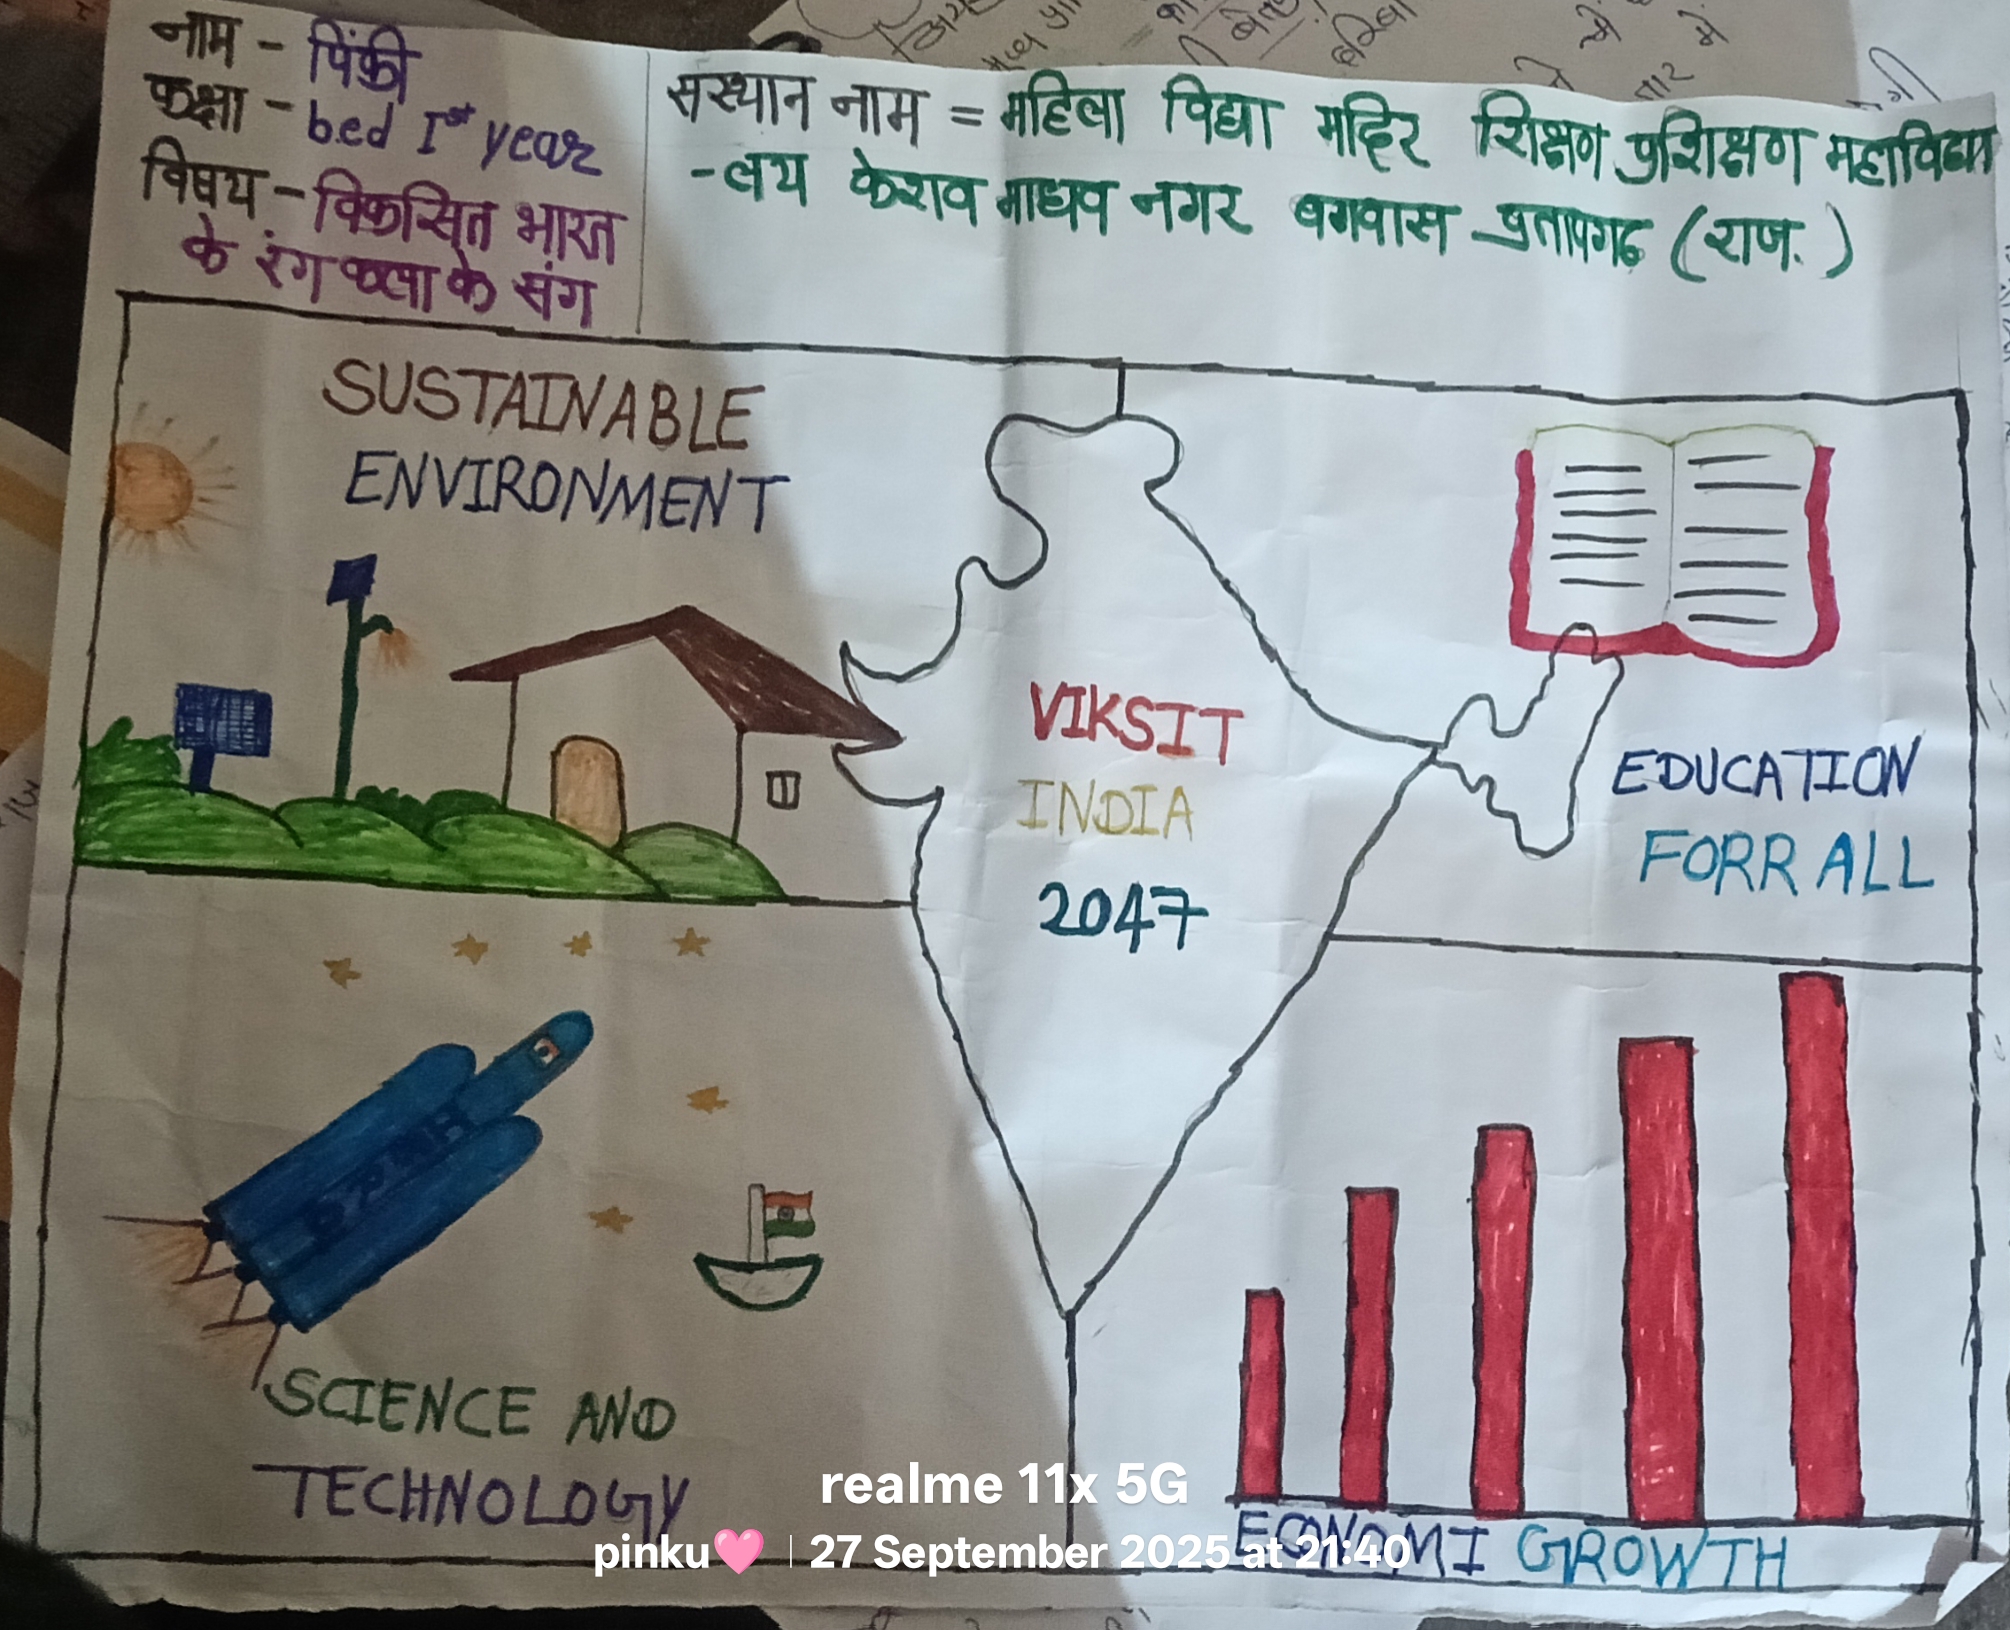 नाम - पिंकी
कक्षा - b.ed Ist year
विषय - विकसित भारत
के रंग कला के संग
सस्थान नाम = महिला विद्या मंदिर शिक्षण प्रशिक्षण महाविद्या
-लय केशव माधव नगर बगवास प्रतापगढ (राज.)
SUSTAINABLE
ENVIRONMENT
VIKSIT
INDIA
2047
EDUCATION
FORR ALL
SCIENCE AND
TECHNOLOGY
ECONOMI GROWTH
realme 11x 5G
pinku🩷 | 27 September 2025 at 21:40